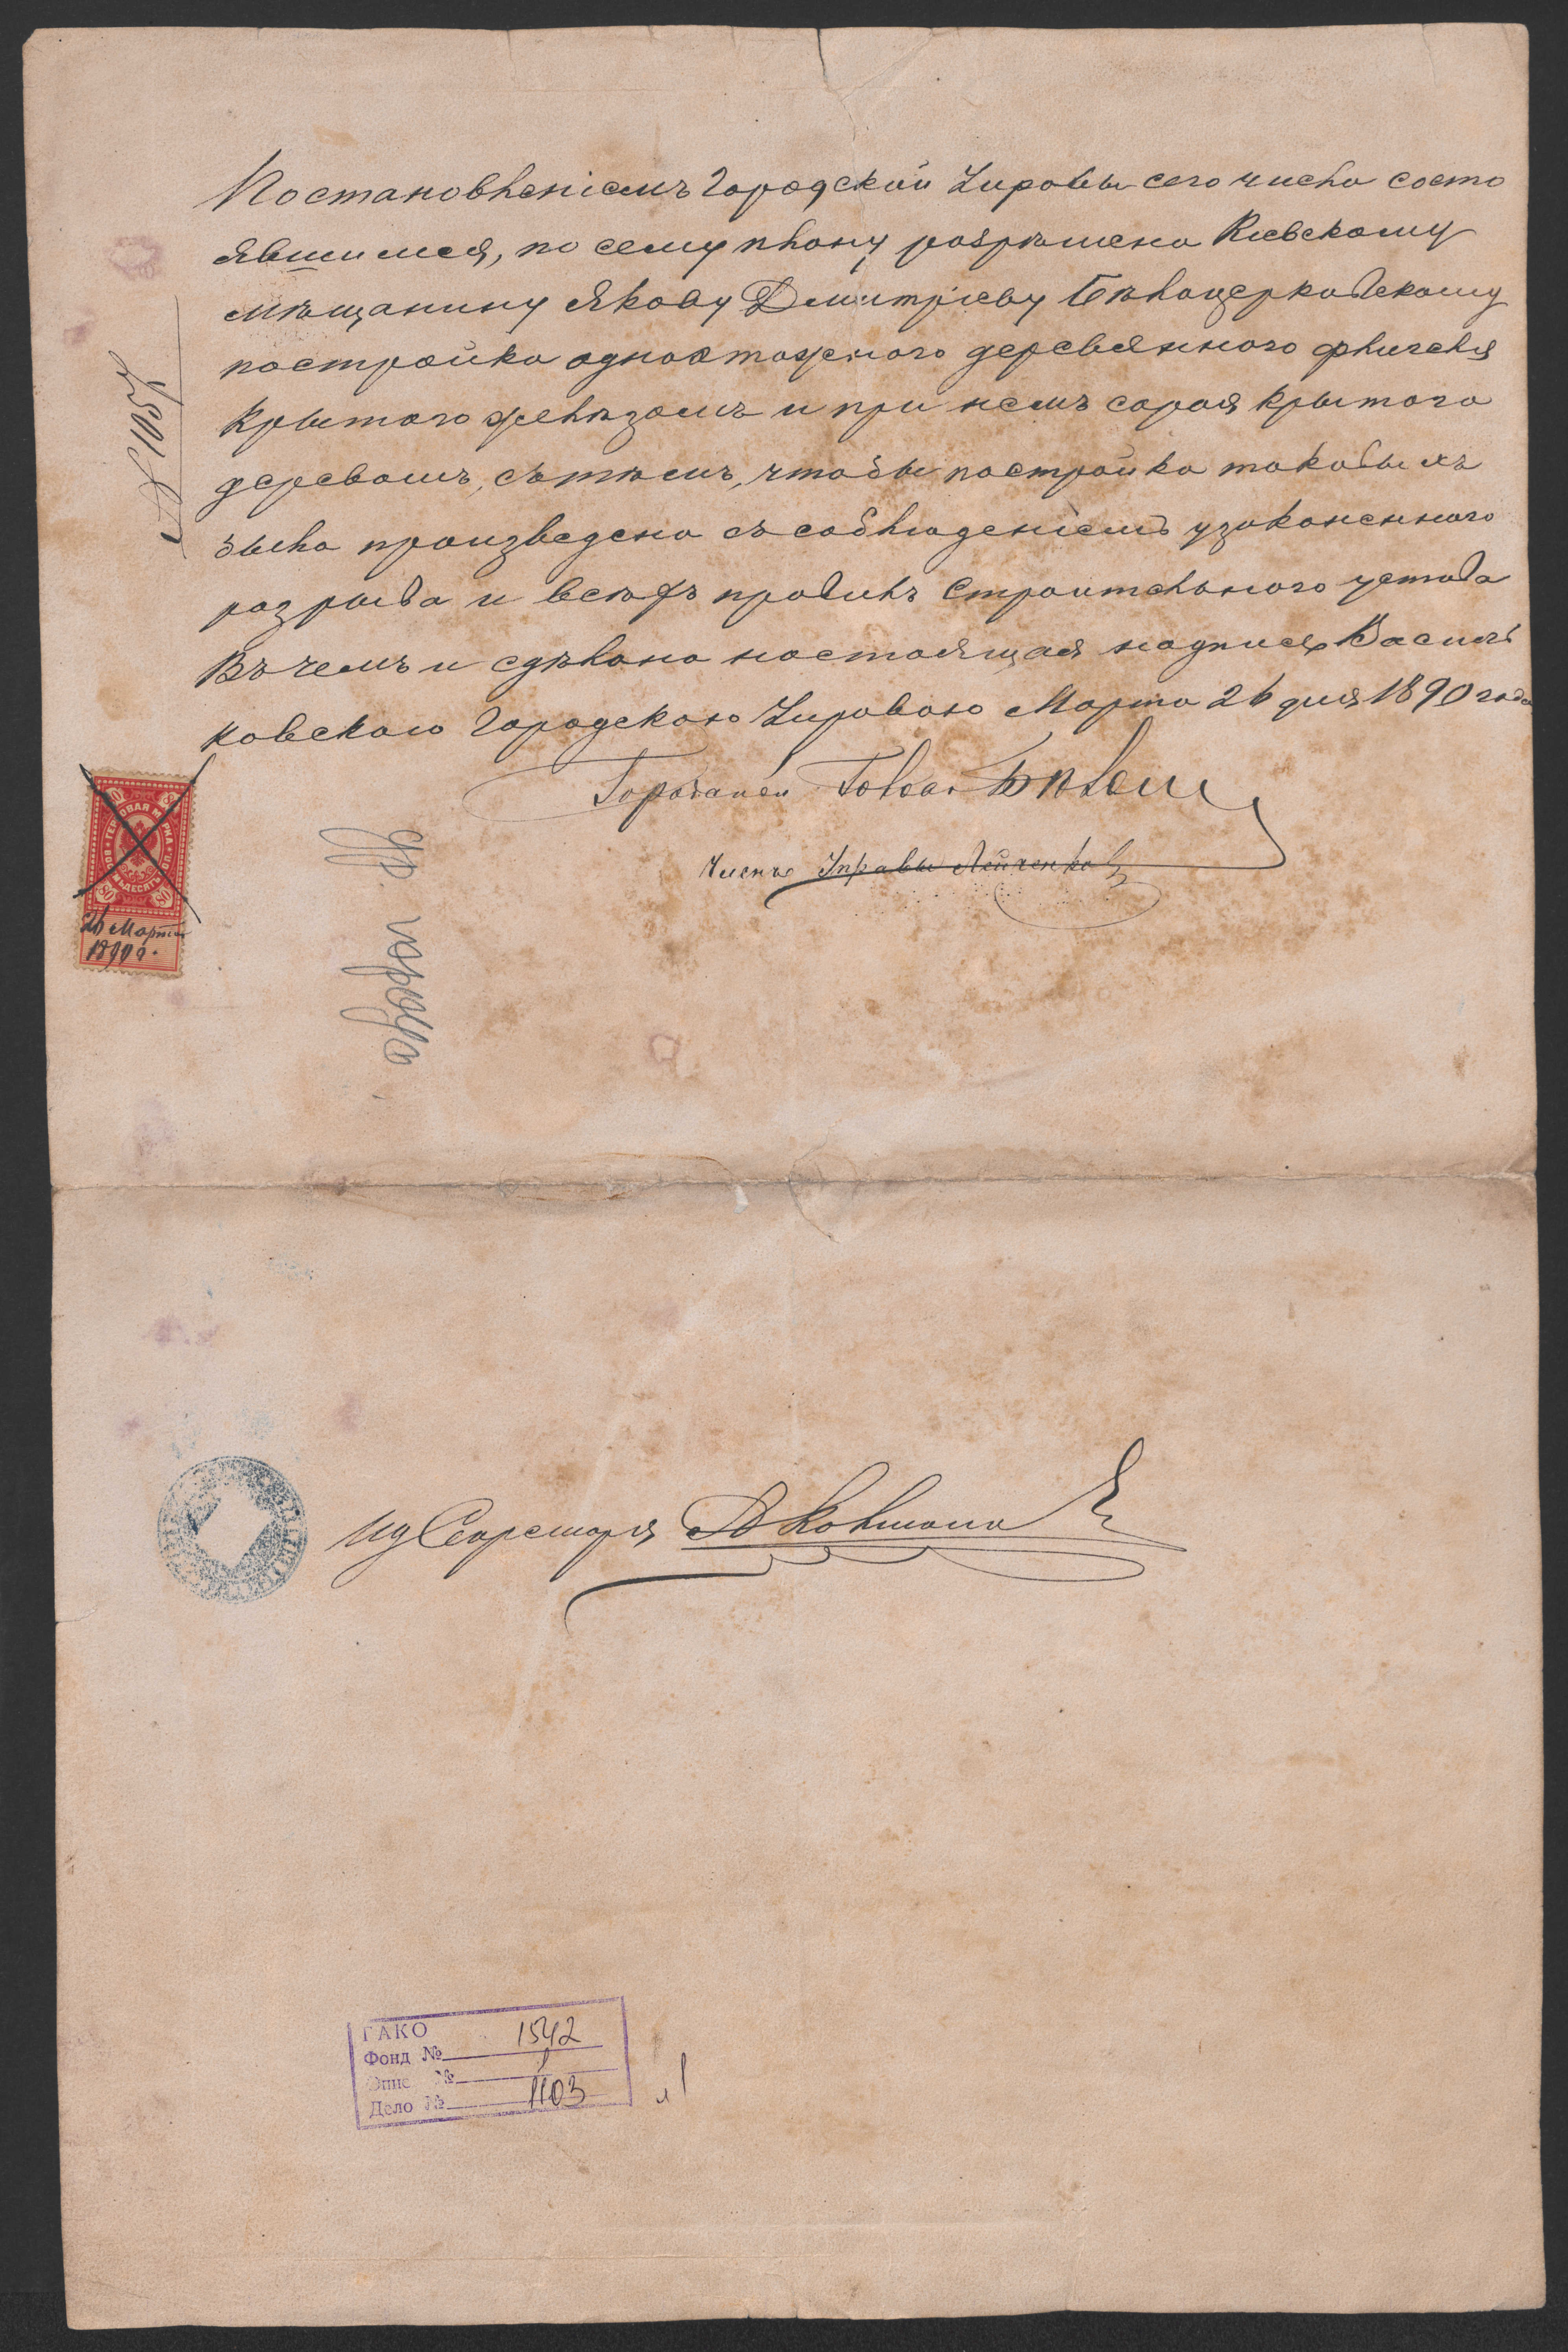 Постановленіемъ Городской Управы сего числа состо
явшимся, по сему плану разрѣшена Кіевскому
мѣщанину Якову Дмитріеву Бѣлоцерковскому
постройка одноэтажного деревянного флигеля
крытого желѣзомъ и при немъ сарая крытого
деревомъ, съ тѣмъ, чтобы постройка таковыхъ
была произведена съ соблюденіемъ узаконенного
разрыва и всѣхъ правилъ Строительного устава
Въ чемъ и сдѣлана настоящая надпись Василь
ковскою Городскою Управою Марта 26 дня 1890 года
Городской Голова
Членъ Управы
№ 1057
80 80
ГЕРБОВАЯ МАРКА
ВОСЕМЬДЕСЯТЪ
80 80
26 Марта
1890 г.
Ид Секретаря
ГАКО 1542
Фонд №
Опис № 1
Дело № 1103
л 1